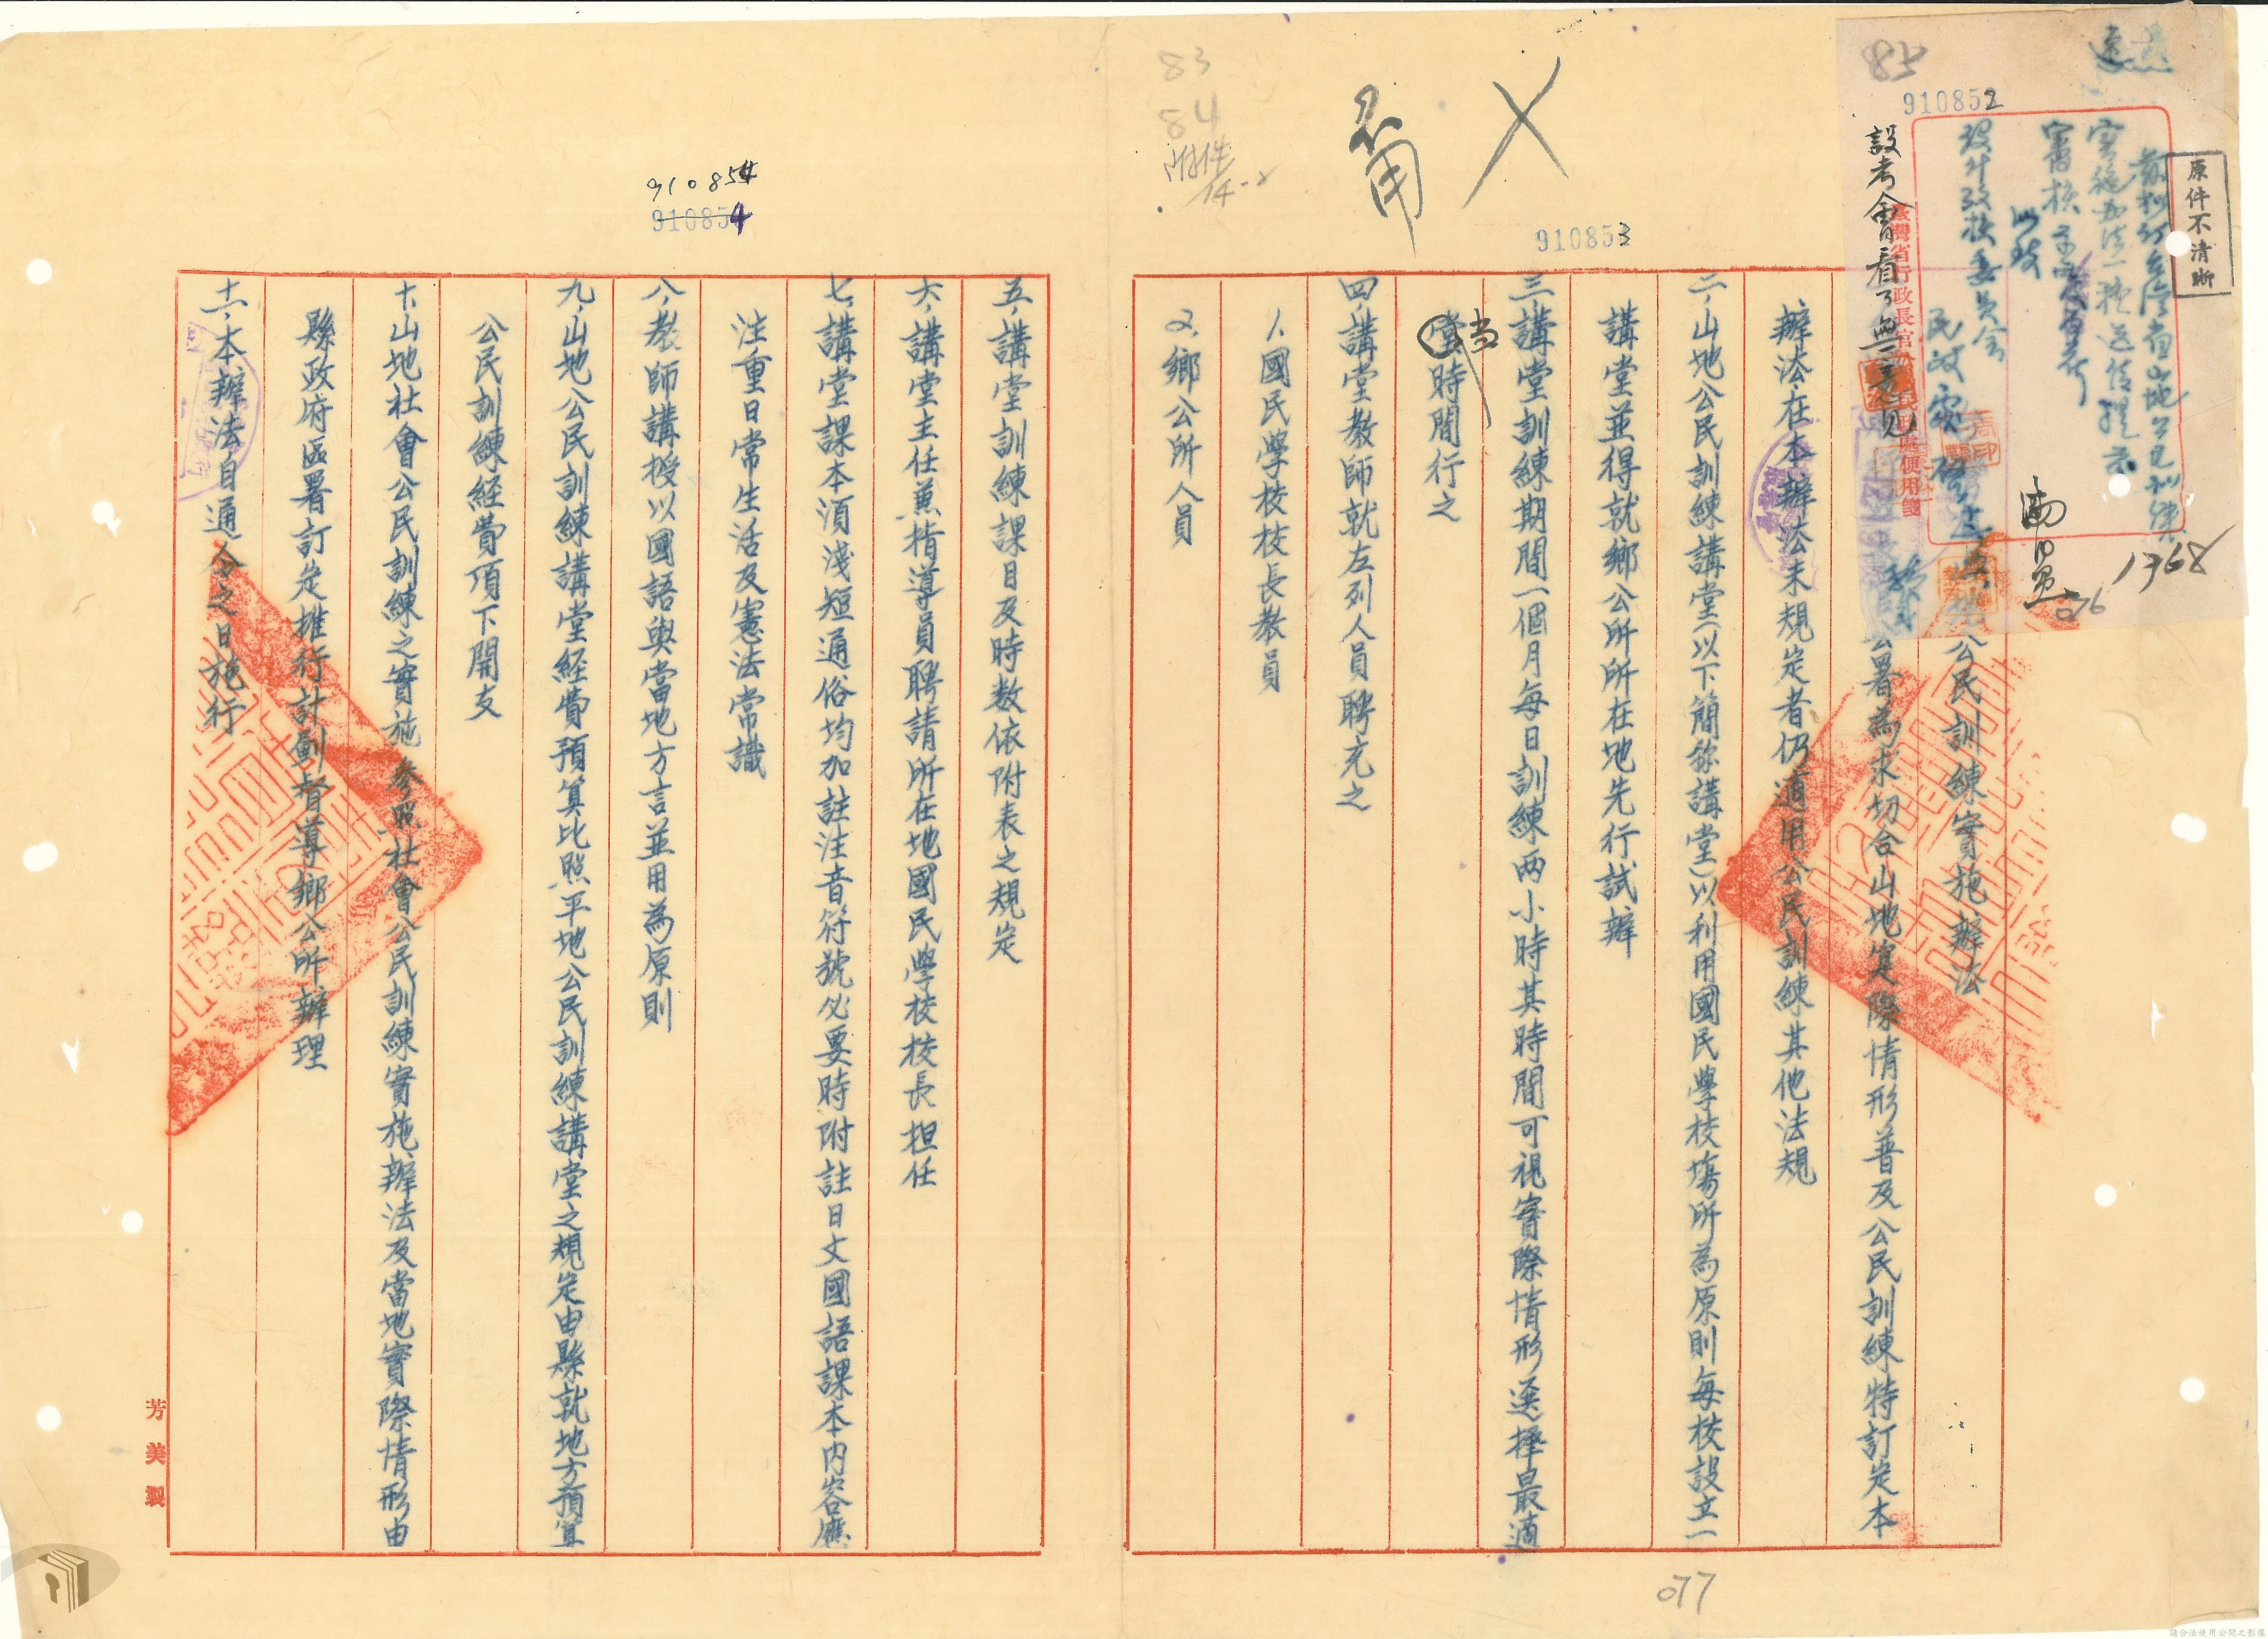 原件不清晰
速
910852
茲擬訂台灣省山地公民訓練
實施办法一種送請提示
審核至
此致
設計政核委員会
民政處 啓
設考會看了無意見
1768
076
83
84
附件
910853
公民訓練實施辦法
公署為求切合山地實際情形普及公民訓練特訂定本
辦法在本辦法未規定者仍適用公民訓練其他法規
二、山地公民訓練講堂(以下簡稱講堂)以利用國民學校塲所為原則每校設立一
講堂並得就鄉公所所在地先行試辦
三講堂訓練期間一個月每日訓練两小時其時間可視實際情形選擇最適
当時間行之
四講堂教師就左列人員聘充之
1.國民學校校長教員
2.鄉公所人員
077
910854
910854
五、講堂訓練課目及時数依附表之規定
六、講堂主任兼指導員聘請所在地國民學校校長担任
七、講堂課本須淺短通俗均加註注音符號必要時附註日文國語課本内容應
注重日常生活及憲法常識
八、教師講授以國語與當地方言並用為原則
九、山地公民訓練講堂經費預算比照平地公民訓練講堂之規定由縣就地方預算
公民訓練經費項下開支
十、山地社會公民訓練之實施參照社會公民訓練實施辦法及當地實際情形由
縣政府區署訂定推行計劃督導鄉公所辦理
十一、本辦法自通令之日施行
芳美製
請合法使用公開之影像